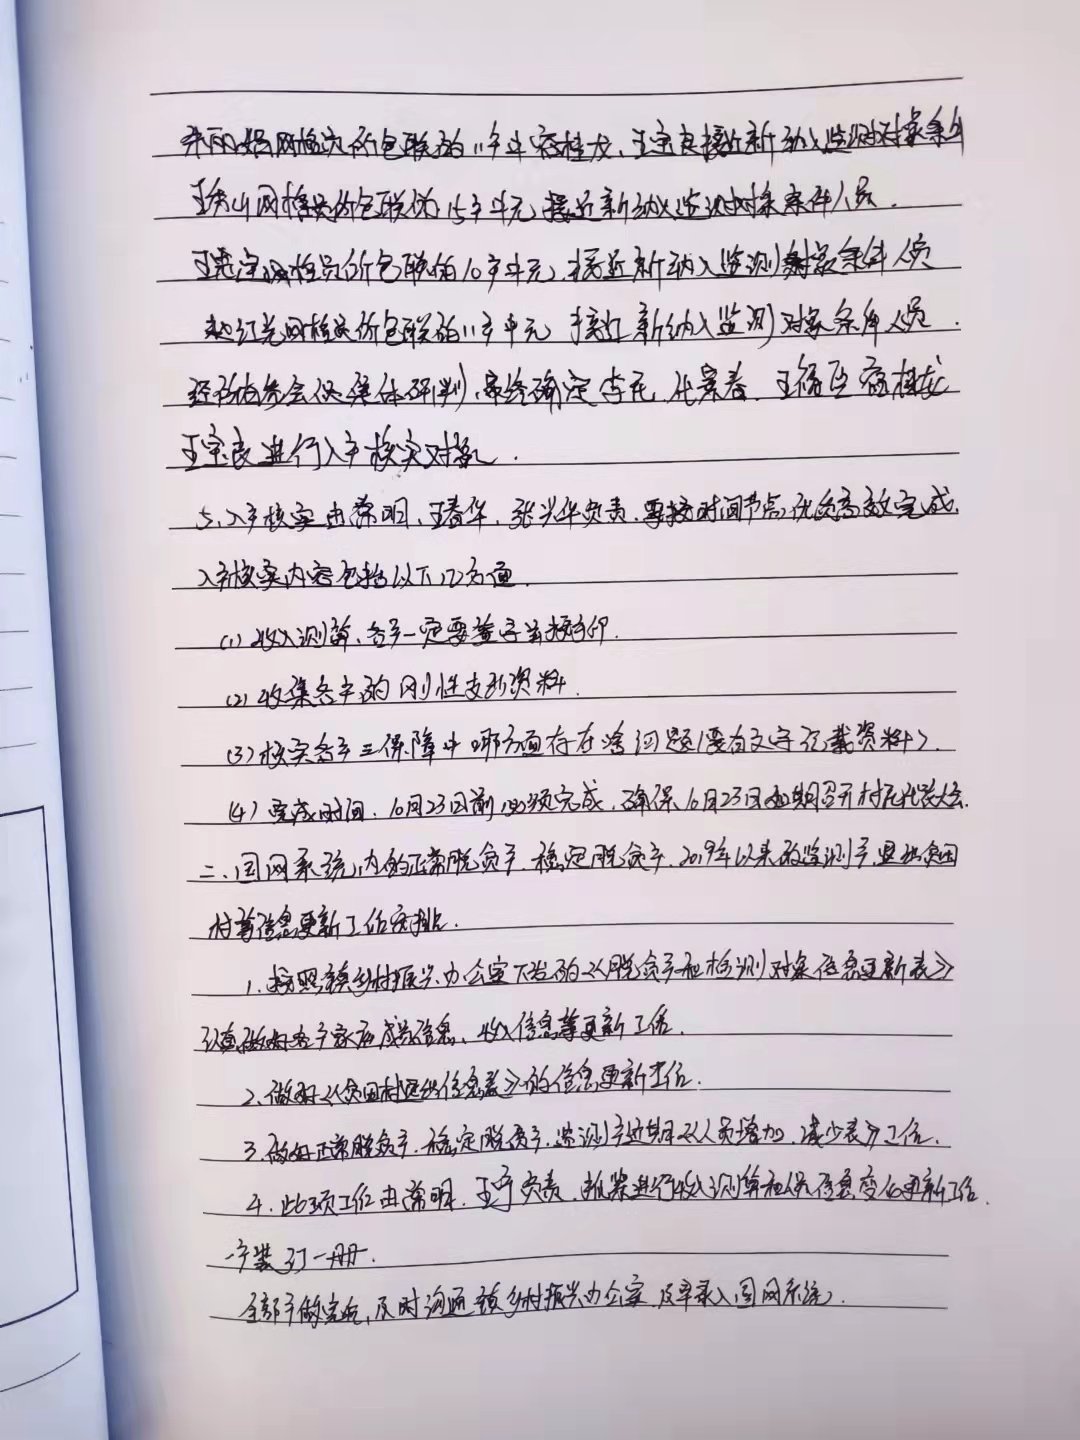 网格员所包联的11户中容桂龙、王宝良接近新纳入监测对象条件
网格员所包联的15户中无接近新纳入监测对象条件人员.
网格员所包联的10户中无,接近新纳入监测对象条件人员
赵红光网格员所包联的11户中无,接近新纳入监测对象条件人员.
经村两委会议集体研判,最终确定李花、王 容桂龙
王宝良进行入户核实对象.
5、入户核实由常明、王春华、张兴华负责,要按时间节点,优质高效完成.
入户核实内容包括以下几方面.
(1)收入测算,各户一定要签字并按手印.
(2)收集各户的刚性支出资料.
(3)核实各户三保障中哪方面存在啥问题(要有文字记载资料).
(4)完成时间,10月23日前必须完成,确保10月23日如期召开村民代表大会.
二、国网系统内的正常脱贫户、稳定脱贫户、2019年以来的监测户、退出贫困
村等信息更新工作安排.
1.按照镇乡村振兴办公室下发的《脱贫户和检测对象信息更新表》
认真做好各户家庭成员信息、收入信息等更新工作.
2、做好《贫困村退出信息表》的信息更新工作.
3.做好正常脱贫户、稳定脱贫户、监测户近期《人员增加、减少表》工作.
4.此项工作由常明、王宁负责,抓紧进行收入测算和人员信息变化更新工作.
一户装订一册.
全部户做完后,及时沟通镇乡村振兴办公室,及早录入国网系统.